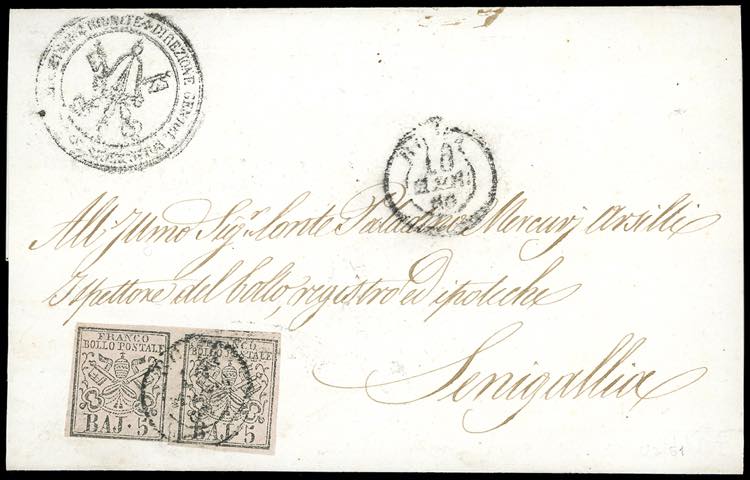 DIREZIONE GEN
10
All' Illmo Sigr. Conte Palladino Mercurj Arsilli
Ispettore del bollo, registro ed ipoteche
Senigallia
FRANCO
BOLLO POSTALE
BAJ · 5
FRANCO
BOLLO POSTALE
BAJ · 5